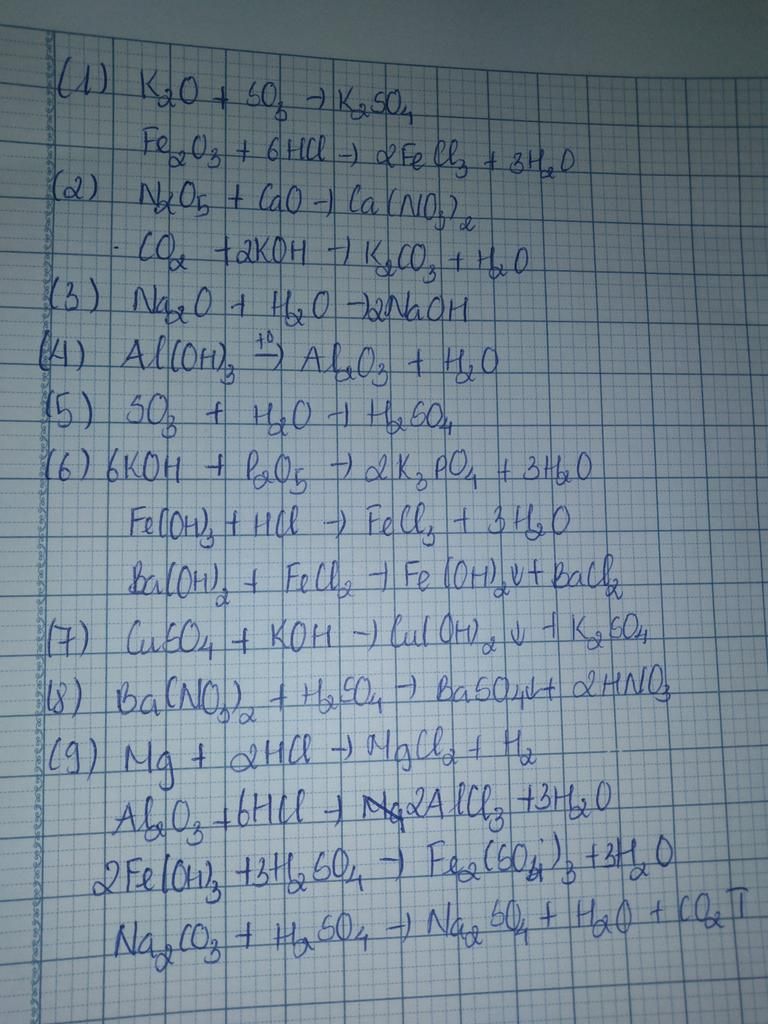 (1) K₂O + SO₃ → K₂SO₄
Fe₂O₃ + 6HCl → 2FeCl₃ + 3H₂O
(2) N₂O₅ + CaO → Ca(NO₃)₂
CO₂ + 2KOH → K₂CO₃ + H₂O
(3) Na₂O + H₂O → 2NaOH
(4) Al(OH)₃ →(t°) Al₂O₃ + H₂O
(5) SO₃ + H₂O → H₂SO₄
(6) 6KOH + P₂O₅ → 2K₃PO₄ + 3H₂O
Fe(OH)₃ + HCl → FeCl₃ + 3H₂O
Ba(OH)₂ + FeCl₂ → Fe(OH)₂↓ + BaCl₂
(7) CuSO₄ + KOH → Cu(OH)₂↓ + K₂SO₄
(8) Ba(NO₃)₂ + H₂SO₄ → BaSO₄↓ + 2HNO₃
(9) Mg + 2HCl → MgCl₂ + H₂
Al₂O₃ + 6HCl → 2AlCl₃ + 3H₂O
2Fe(OH)₃ + 3H₂SO₄ → Fe₂(SO₄)₃ + 3H₂O
Na₂CO₃ + H₂SO₄ → Na₂SO₄ + H₂O + CO₂↑